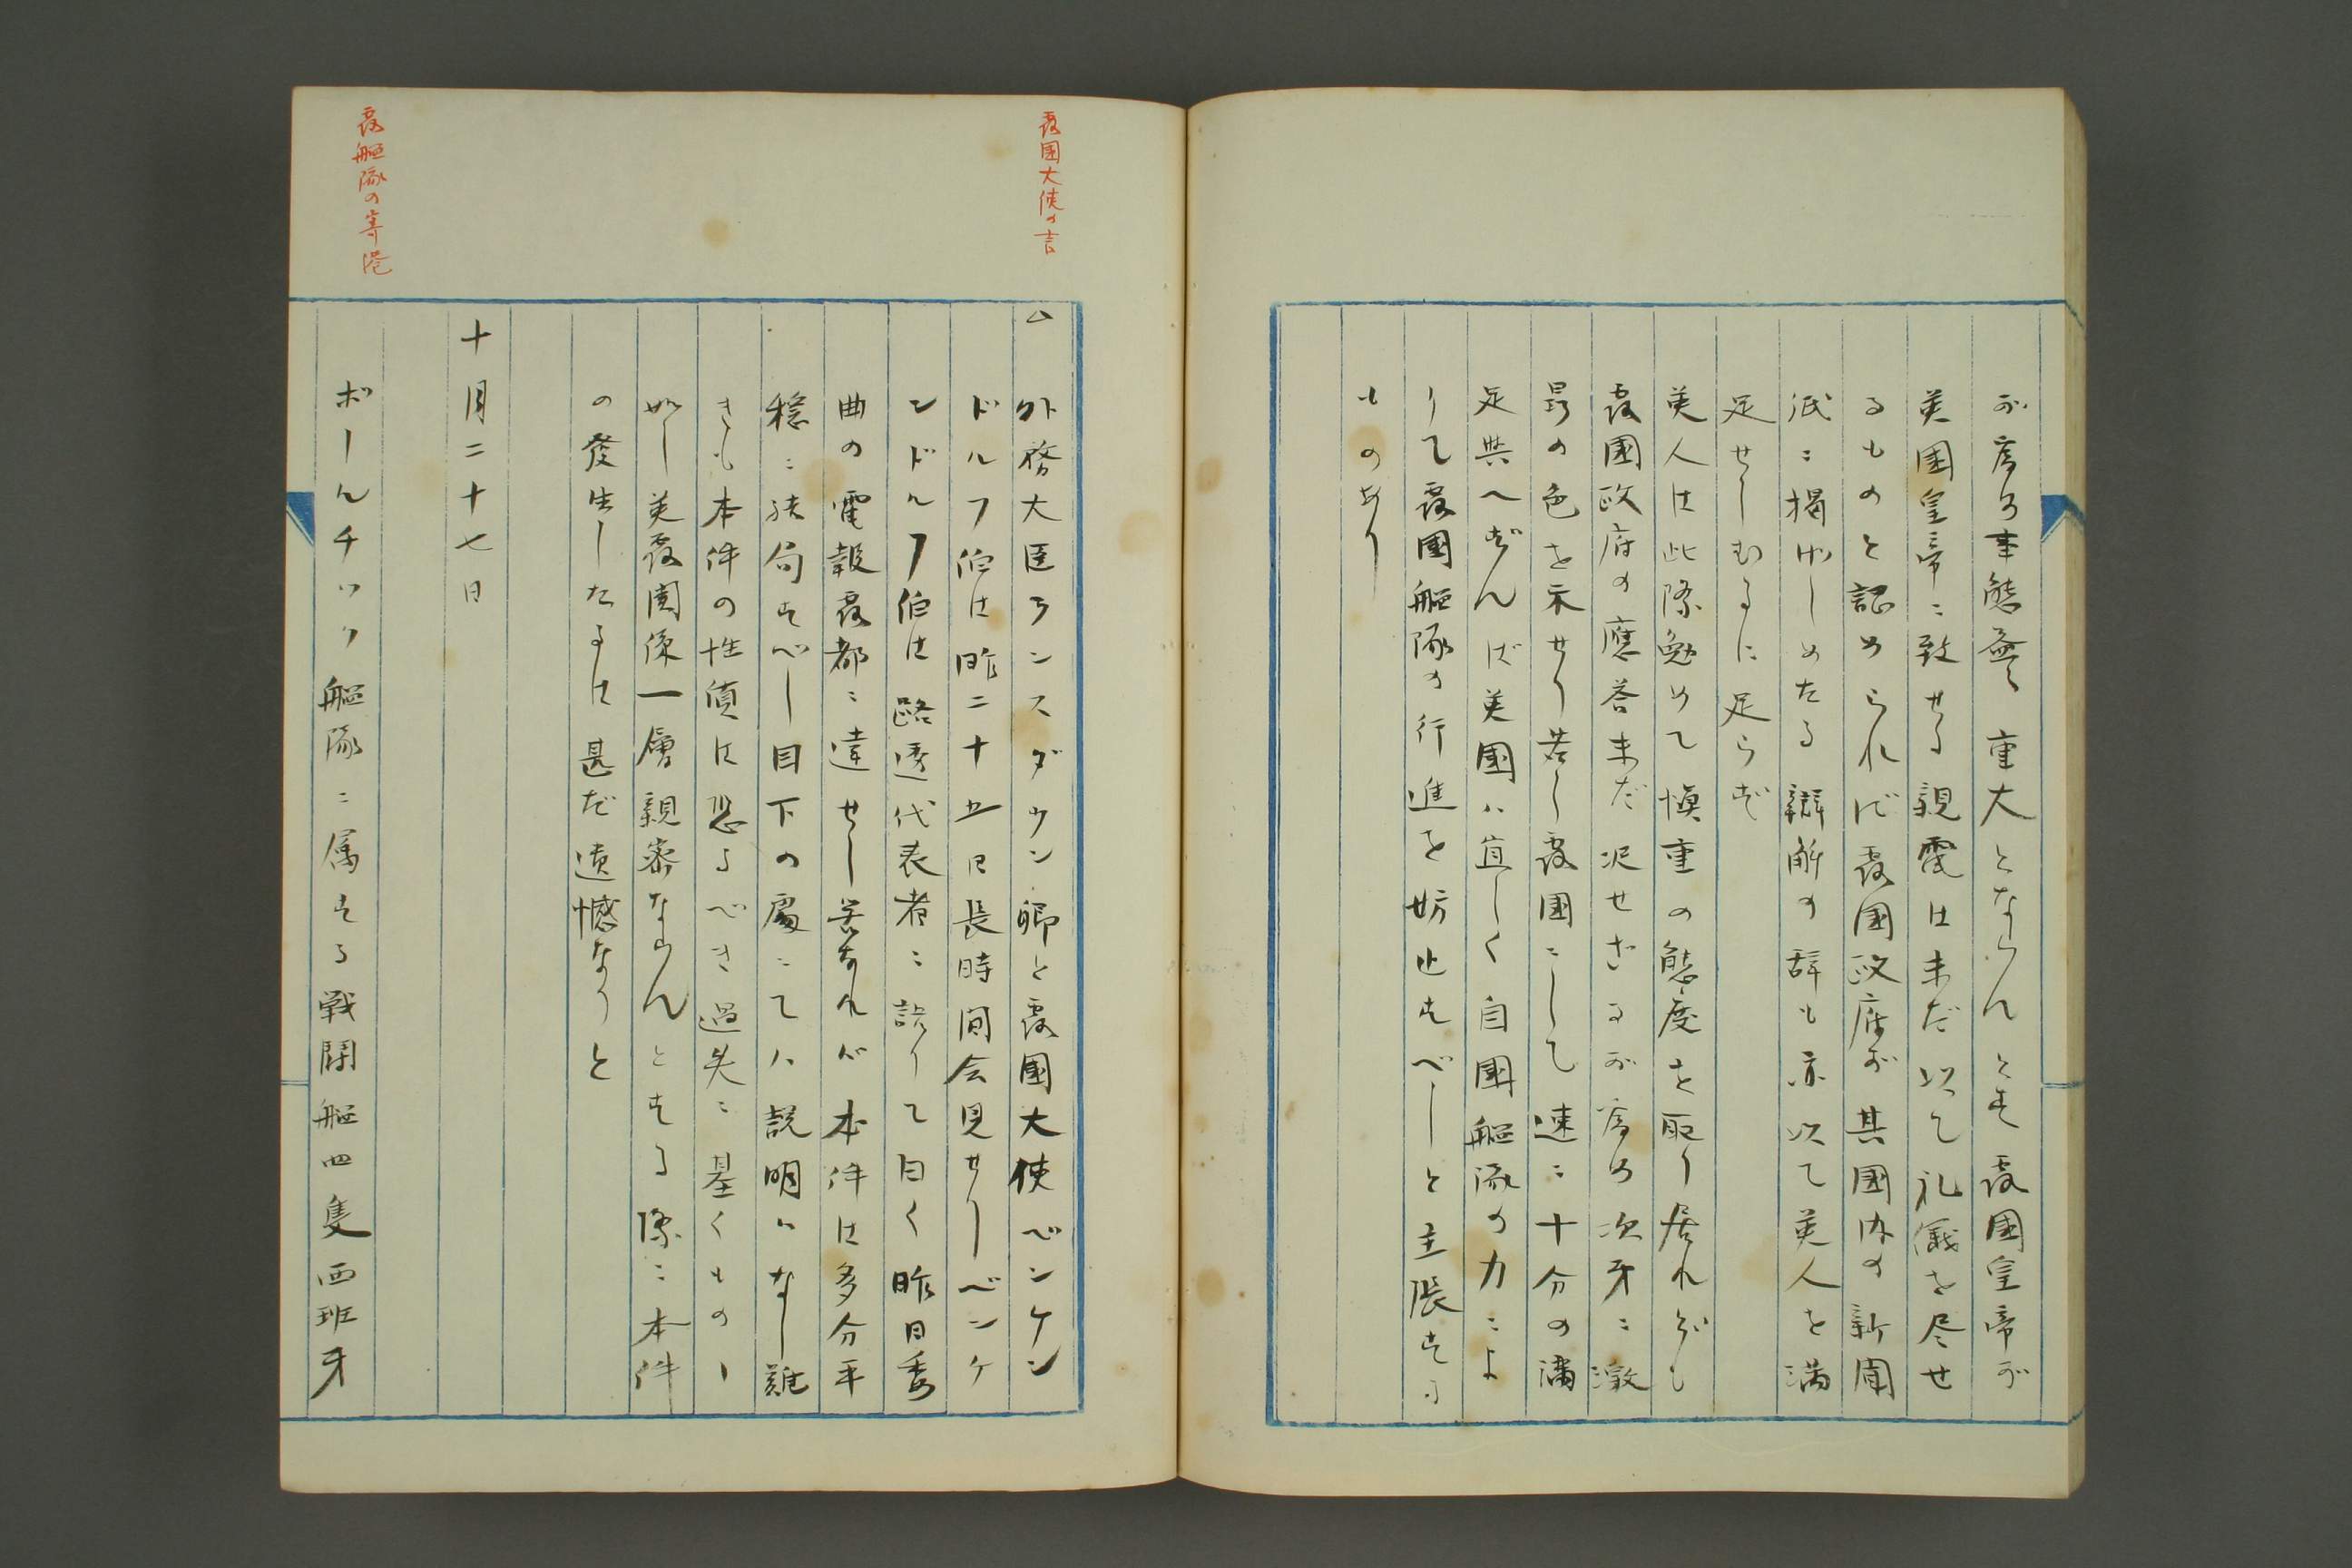 が爲め事態益々重大とならんとす露國皇帝が
英國皇帝に致せる親電は未だ以て礼儀を尽せ
るものと認められず露國政府が其國内の新聞
紙に掲出しめたる辯解の辞も亦以て英人を満
足せしむるに足らず
英人は此際勉めて慎重の態度を取り居れども
露國政府の應答未だ決せざるが爲め次第に激
昂の色を示せり若し露國にして速に十分の満
足與へずんば英國は宜しく自國艦隊の力によ
りて露國艦隊の行進を妨止すべしと主張する
ものあり
露国大使の言
△外務大臣ランスダウン卿と露國大使ベンケン
ドルフ伯は昨二十五日長時間会見せりベンケ
ンドルフ伯は路透代表者に語りて曰く昨日委
曲の電報露都に達せし筈なれば本件は多分平
穏に結局すべし目下の處にては説明はなし難
きも本件の性質は恐るべき過失に基くものゝ
如し英露関係一層親密ならんとする際に本件
の發生したるは甚だ遺憾なりと
十月二十七日
露艦隊の寄港
ボールチック艦隊に属する戦闘艦四隻西班牙